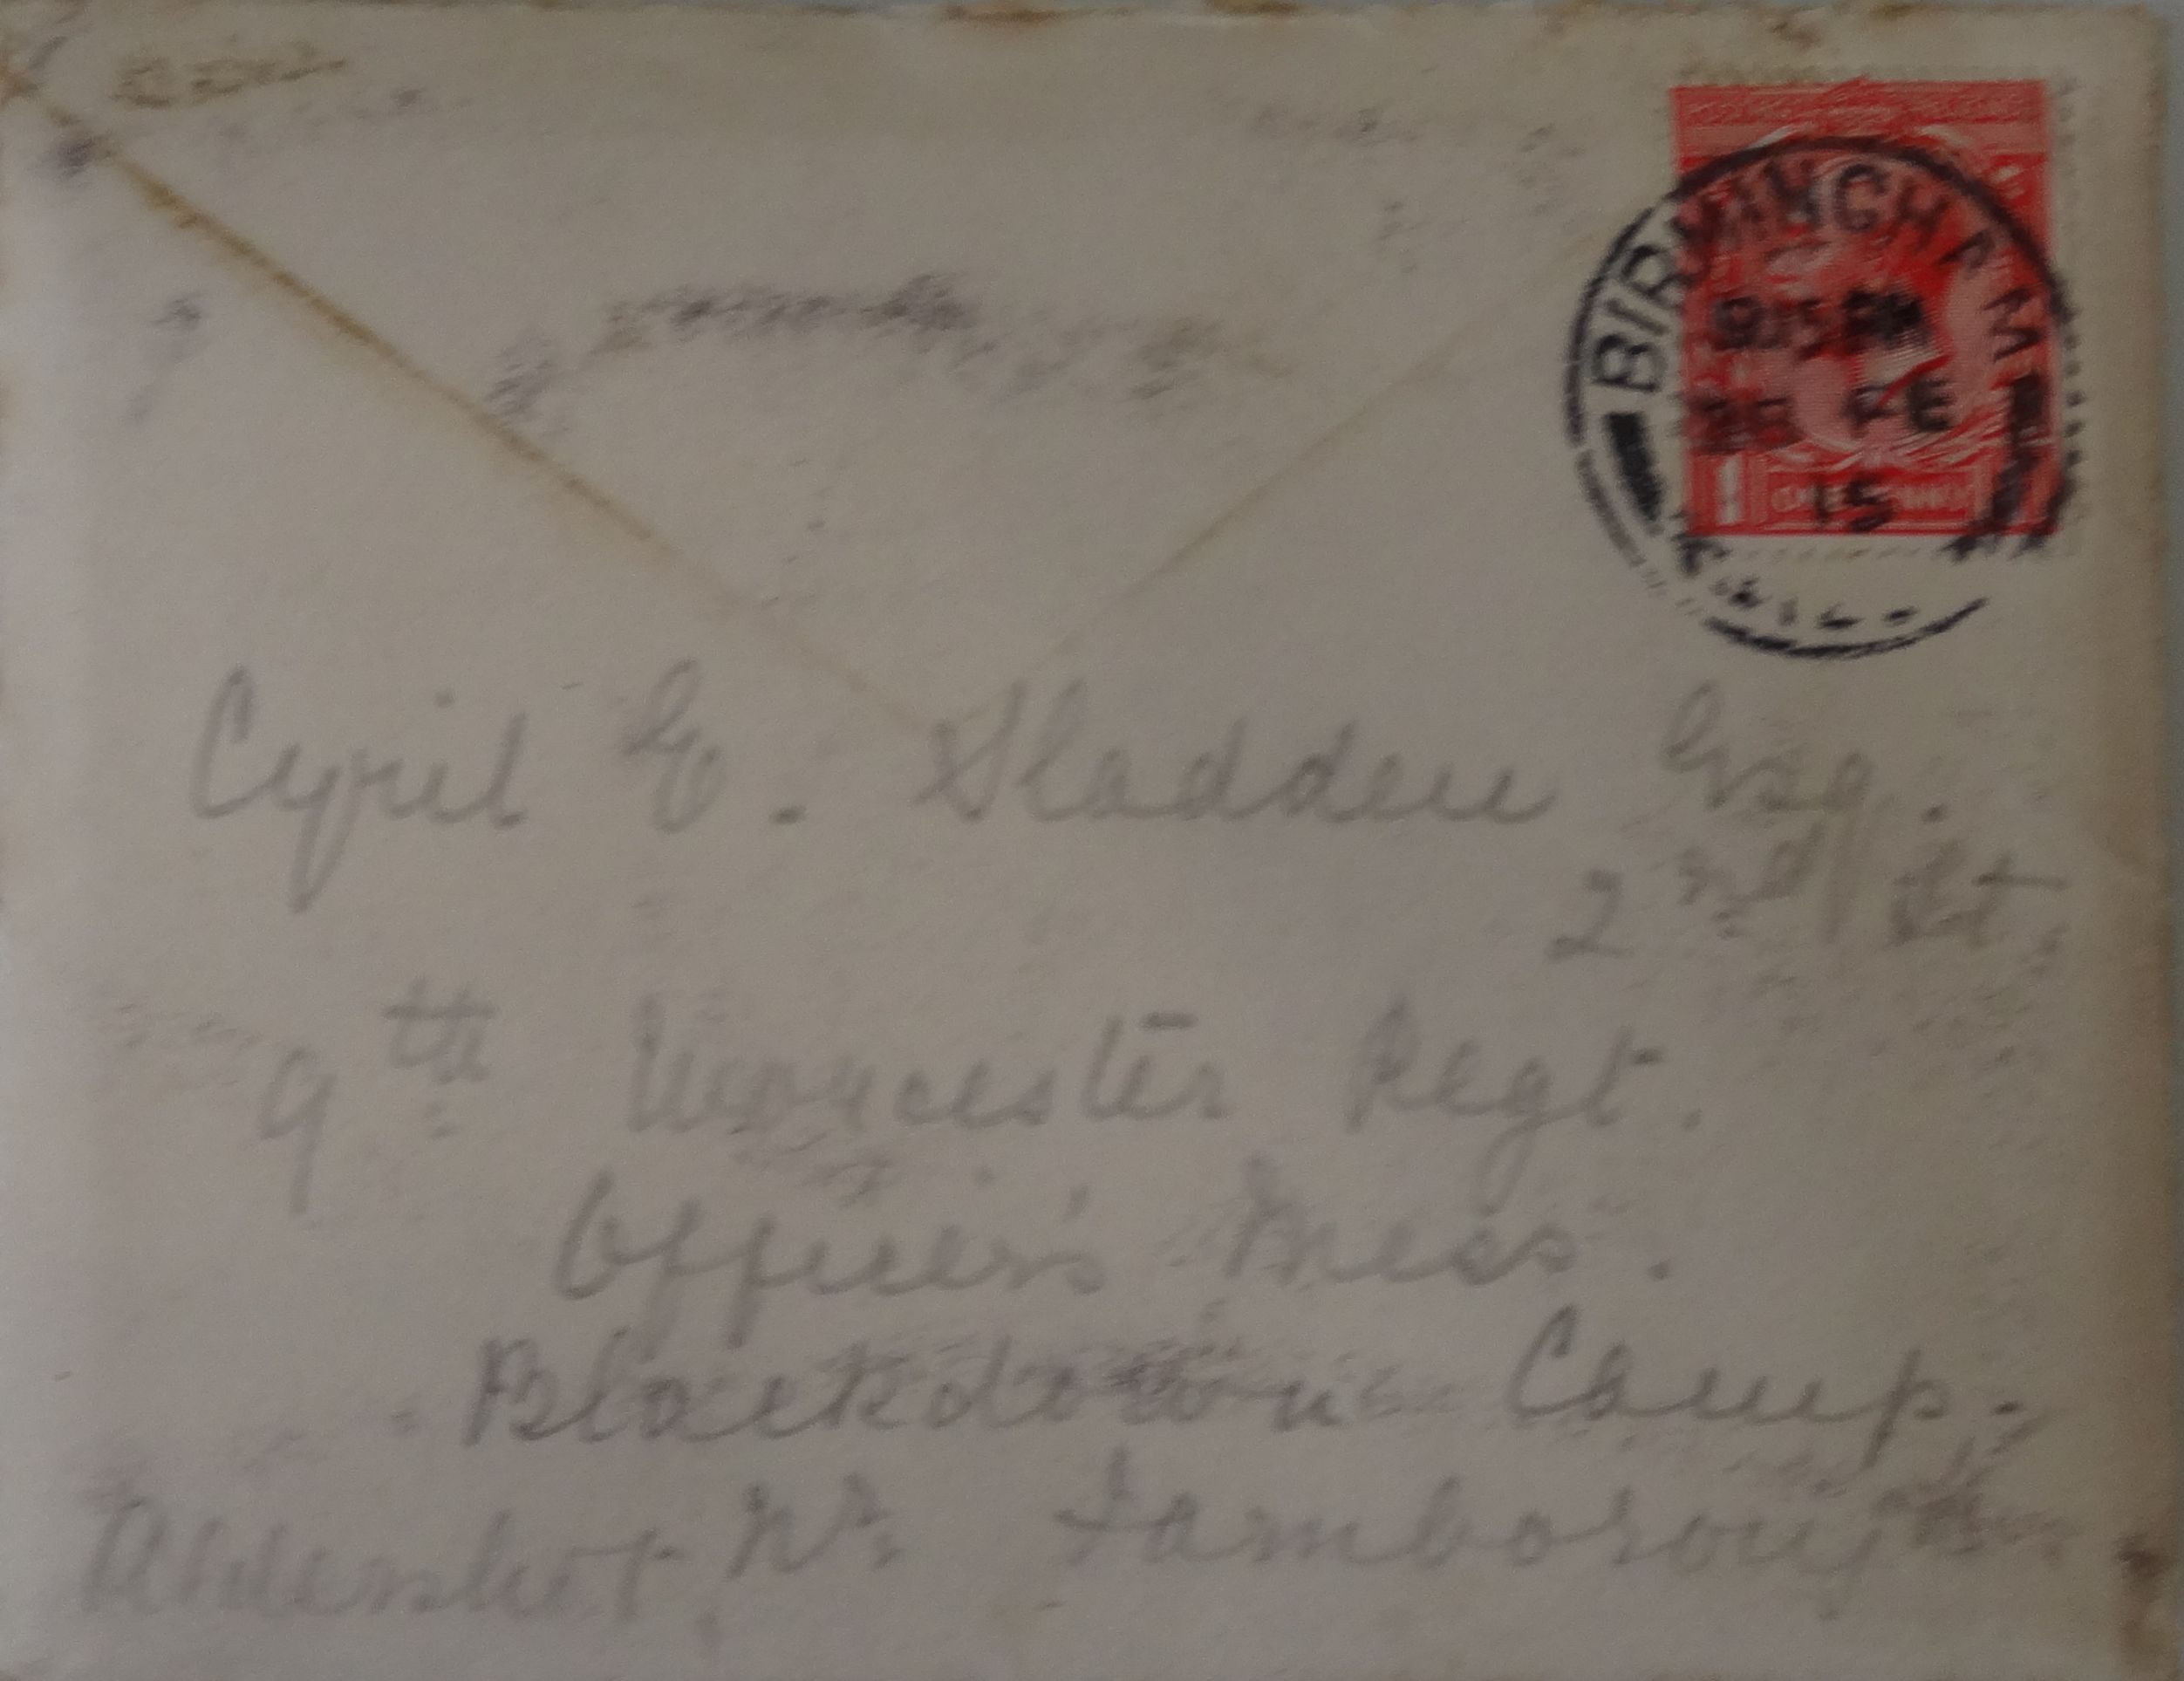 BIRMINGHAM
FE
15
1 ONE PENNY
Cyril E. Sladden Esq.
2nd Lt.
9th Worcester Regt.
Officer's Mess.
Blackdown Camp.
Aldershot, Nr. Farnborough